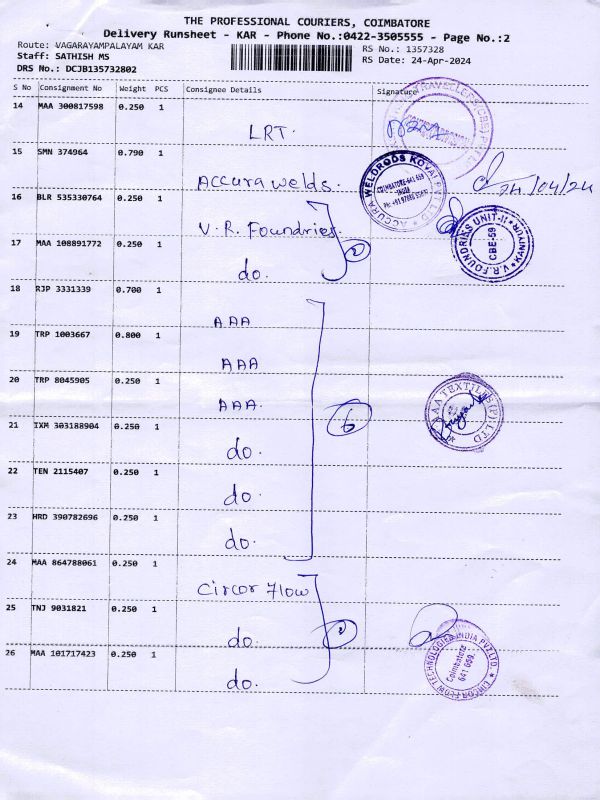 THE PROFESSIONAL COURIERS, COIMBATORE
Delivery Runsheet - KAR - Phone No.:0422-3505555 - Page No.:2
Route: VAGARAYAMPALAYAM KAR
RS No.: 1357328
Staff: SATHISH MS
RS Date: 24-Apr-2024
DRS No.: DCJB135732802
S No Consignment No Weight PCS Consignee Details Signature
14 MAA 300817598 0.250 1
LRT.
15 SMN 374964 0.790 1
Accura welds.
ACCURA WELDRODS KOVAI PVT LTD
COIMBATORE-641 659
INDIA
24/04/24
16 BLR 535330764 0.250 1
V.R. Foundries.
V.R.FOUNDRIES UNIT-II KANIYUR
CBE-59
17 MAA 108891772 0.250 1
do.
2
18 RJP 3331339 0.700 1
AAA
19 TRP 1003667 0.800 1
AAA
20 TRP 8045905 0.250 1
AAA.
6
AAA TEXTILES (P) LTD
21 IXM 303188904 0.250 1
do.
22 TEN 2115407 0.250 1
do.
23 HRD 390782696 0.250 1
do.
24 MAA 864788061 0.250 1
Circor Flow
25 TNJ 9031821 0.250 1
do.
CIRCOR FLOW TECHNOLOGIES INDIA PVT.LTD.
Coimbatore
641 659.
26 MAA 101717423 0.250 1
do.